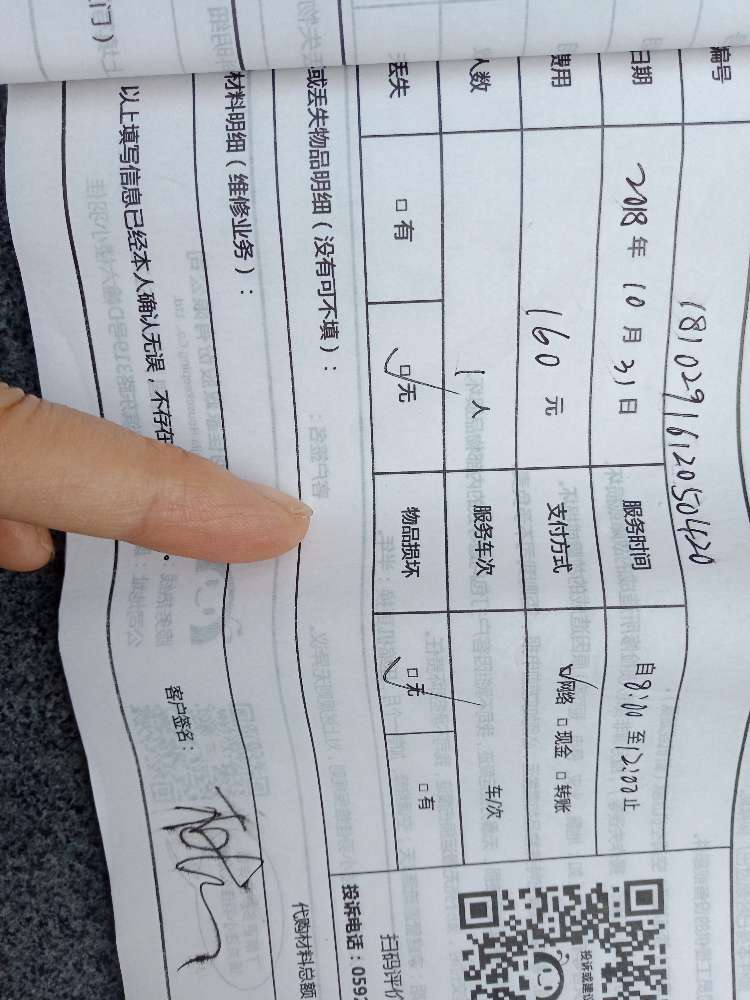 编号 1810291612050420
日期 2018年10月31日 服务时间 自8:00至12:00止
费用 160元 支付方式 ☑网络 □现金 □转账
人数 1人 服务车次 车/次
丢失 □有 ☑无 物品损坏 ☑无 □有
或丢失物品明细（没有可不填）：
材料明细（维修业务）：
代购材料总额
以上填写信息已经本人确认无误，不存在
客户签名：
投诉电话：059
扫码评价
投诉或建议